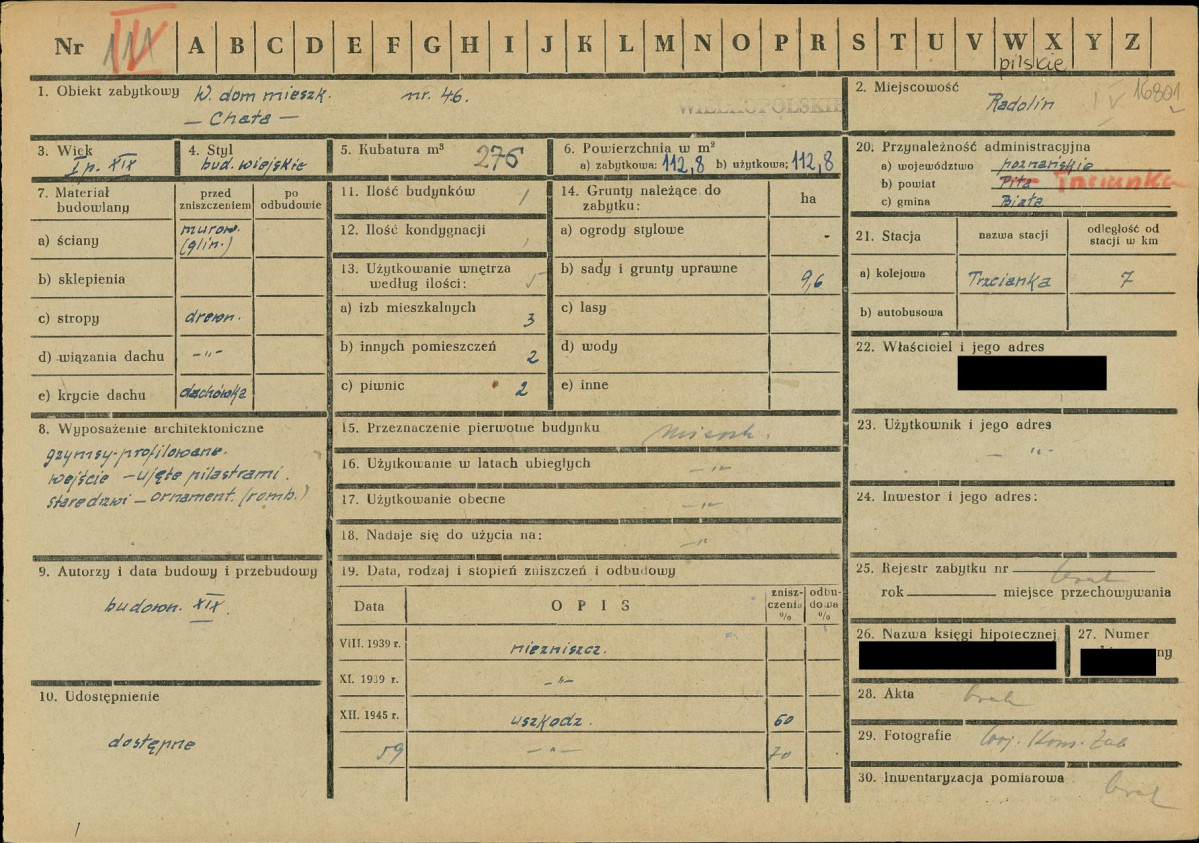 Nr IV A B C D E F G H I J K L M N O P R S T U V W X Y Z
pilskie
1. Obiekt zabytkowy W. dom mieszk. nr. 46.
— Chata —
WIELKOPOLSKIE
2. Miejscowość
Radolin IV 16801
3. Wiek
I p. XIX
4. Styl
bud. wiejskie
5. Kubatura m³ 276
6. Powierzchnia w m²
a) zabytkowa: 112,8 b) użytkowa: 112,8
20. Przynależność administracyjna
a) województwo poznańskie
b) powiat Piła Trzcianka
c) gmina Biała
7. Materiał budowlany
przed zniszczeniem
po odbudowie
a) ściany murow. (glin.)
b) sklepienia
c) stropy drewn.
d) wiązania dachu —"—
e) krycie dachu dachówka
11. Ilość budynków 1
12. Ilość kondygnacji 1
13. Użytkowanie wnętrza
według ilości: 5
a) izb mieszkalnych 3
b) innych pomieszczeń 2
c) piwnic 2
14. Grunty należące do
zabytku:
ha
a) ogrody stylowe -
b) sady i grunty uprawne 9,6
c) lasy
d) wody
e) inne
21. Stacja
nazwa stacji
odległość od
stacji w km
a) kolejowa Trzcianka 7
b) autobusowa
22. Właściciel i jego adres
8. Wyposażenie architektoniczne
gzymsy-profilowane.
wejście — ujęte pilastrami.
stare drzwi — ornament. (romb.)
15. Przeznaczenie pierwotne budynku mieszk.
16. Użytkowanie w latach ubiegłych —"—
17. Użytkowanie obecne —"—
18. Nadaje się do użycia na: —"
23. Użytkownik i jego adres
— "—
24. Inwestor i jego adres:
9. Autorzy i data budowy i przebudowy
budown. XIX.
19. Data, rodzaj i stopień zniszczeń i odbudowy
Data
OPIS
znisz-
czenia
%
odbu-
dowa
%
VIII. 1939 r. niezniszcz.
XI. 1939 r. —"—
XII. 1945 r. uszkodz. 60
59 —"— 70
25. Rejestr zabytku nr brak
rok miejsce przechowywania
26. Nazwa księgi hipotecznej
27. Numer
ny
10. Udostępnienie
dostępne
28. Akta brak
29. Fotografie Woj. Kons. Zab
30. Inwentaryzacja pomiarowa brak